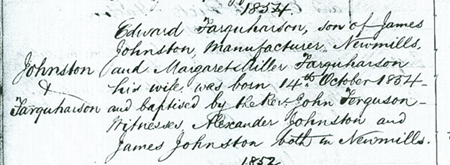 1854.
Edward Farquharson, son of James
Johnston, Manufacturer, Newmills,
Johnston and Margaret Miller Farquharson
& his wife was born 14th October 1854
Farquharson and baptised by the Rev. John Ferguson
Witnesses, Alexander Johnston and
James Johnston both in Newmills.
1852